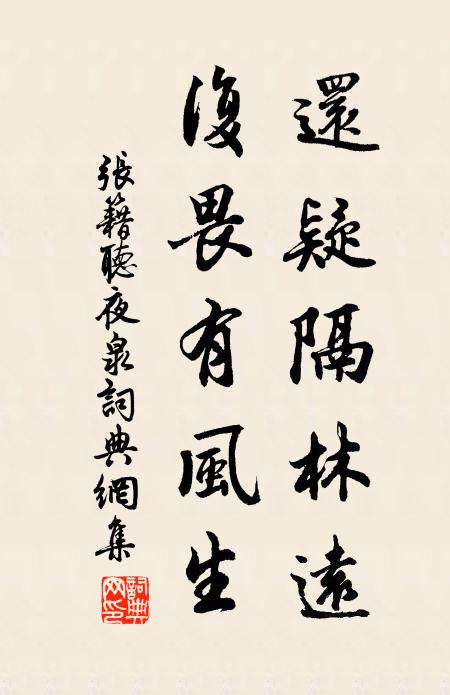 還疑隔林遠
復畏有風生
張籍聽夜泉詞典網集
詞典网印